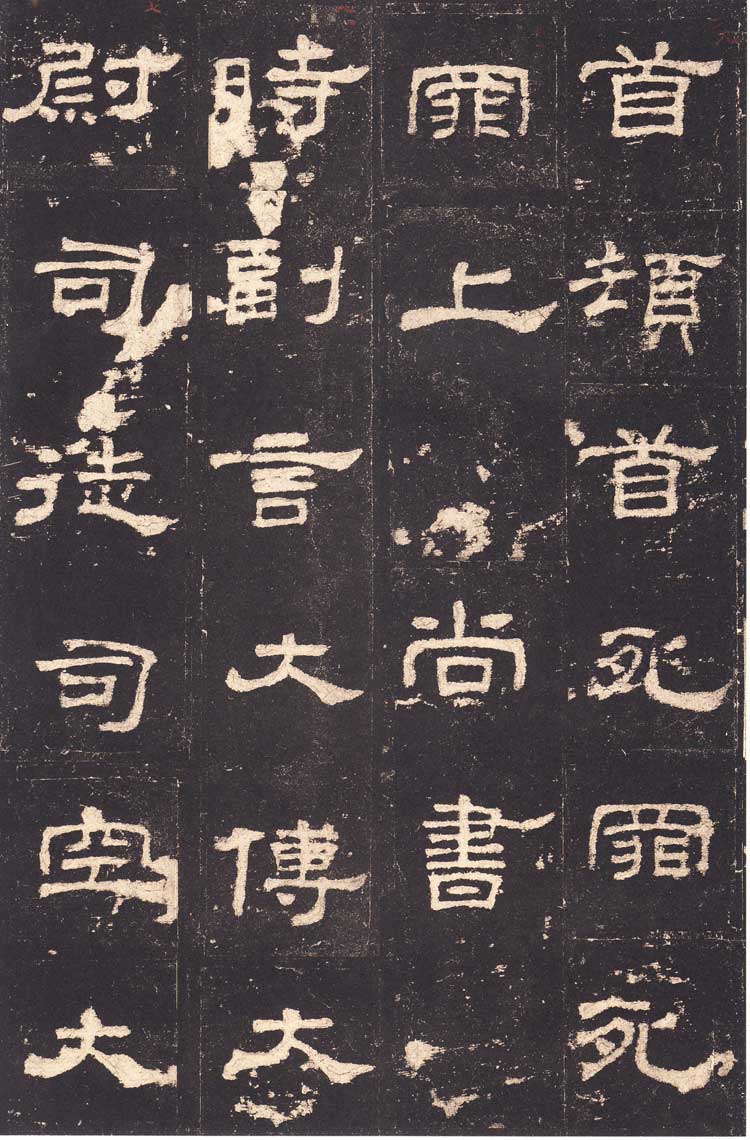 首頓首死罪死
罪上尚書
時副言大傅大
尉司徒司空大